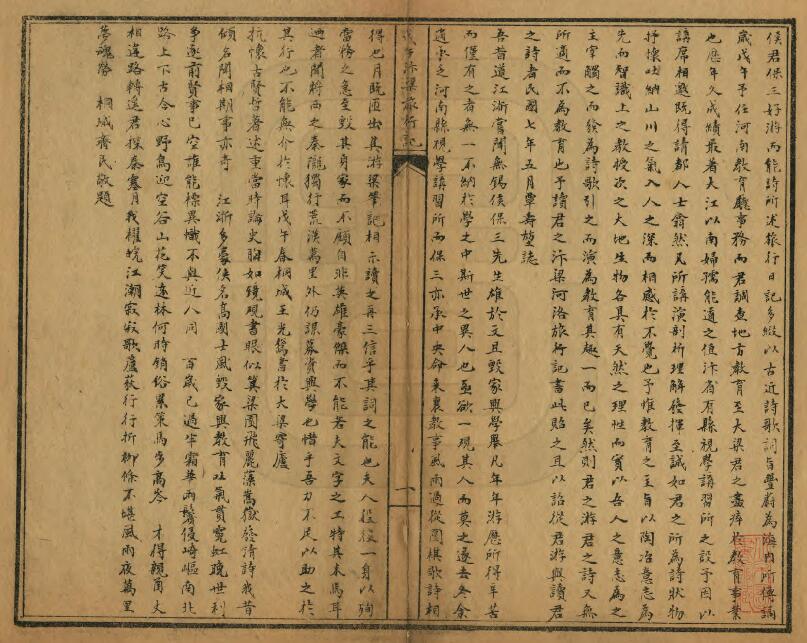 侯君保三好游而能詩所述旅行日記多綴以古近詩歌詞旨豐蔚為海內所傳誦
歲戊午予任河南教育廳事務而君調查地方教育至大梁君之盡瘁於教育事業
也歷年久成績最著大江以南婦孺能道之值汴省有縣視學講習所之設予因以
講席相邀既得請都人士翕然凡所講演剖析理解發揮至誠如君之所為詩狀物
抒懷吐納山川之氣入人之深而相感於不覺也予惟教育之主旨以陶冶意志為
先而智識上之教授次之大地生物各具有天然之理性而實以吾人之意志為之
主宰觸之而發為詩歌引之而演為教育其趣一而已矣然則君之游君之詩又無
所適而不為教育也予讀君之汴梁河洛旅行記書此貽之且以諗從君游與讀君
之詩者民國七年五月覃壽堃誌
吾昔道江浙嘗聞無錫侯保三先生雄於文且毀家興學舉凡年年游歷所得辛苦
而僅有之者無一不納於學之中斯世之異人也亟欲一現其人而莫之遂去冬余
適承乏河南縣視學講習所而保三亦承中央命來襄教事風雨過從圍棋歌詩相
汴梁旅行記
一
得也月既匝出其游梁筆記相示讀之再三信乎其詞之能也夫人殺役一身以殉
當務之急至毀其身家而不顧自非英雄豪傑而不能若夫文字之工特其末焉耳
迺者聞將西之秦隴獨行荒漠萬里外仍謀募資興學也惜乎吾力不足以助之於
其行也不能無介於懷耳戊午春桐城王光鸞書於大梁寄廬
抗懷古賢哲著述重當時論史胸如鏡觀書眼似箕梁園飛麗藻嵩嶽發清詩我昔
傾名聞相期事亦奇　江浙多豪俠名高國士風毀家興教育吐氣貫霓虹晚世利
爭逐前賢事已空誰能標異幟不與近人同　百歲已過半霜華兩鬢侵崎嶇南北
路上下古今心野鳥迎空谷山花笑遠林何時銷俗累策馬多高岑　才得親函丈
相違路轉遙君探秦塞月我櫂皖江潮寂寂歌蘆荻行行折柳條不堪風雨夜萬里
夢魂勞　桐城齊民敬題